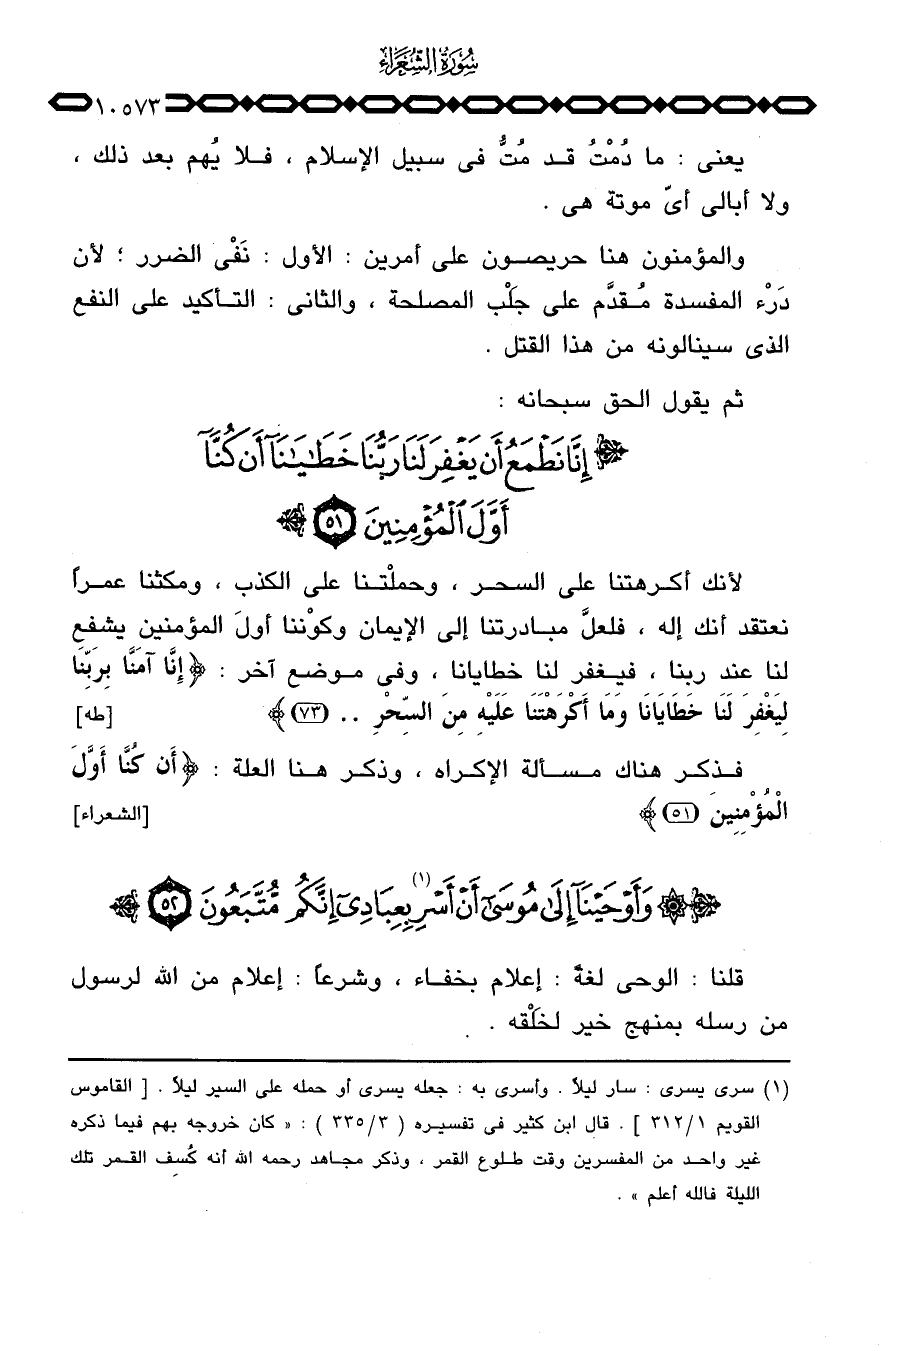 سُورَةُ الشُّعَرَاءِ
١٠٥٧٣
يعنى : ما دُمْتُ قـد مُتُّ فى سبيل الإسلام ، فـلا يُهم بعد ذلك ،
ولا أبالى أىّ موتة هى .
والمؤمنون هنا حريصـون على أمرين : الأول : نَفْى الضرر ؛ لأن
دَرْء المفسدة مُقدَّم على جَلْب المصلحة ، والثانى : التـأكيد على النفع
الذى سينالونه من هذا القتل .
ثم يقول الحق سبحانه :
﴿ إِنَّا نَطْمَعُ أَن يَغْفِرَ لَنَا رَبُّنَا خَطَٰيَٰنَآ أَن كُنَّآ
أَوَّلَ ٱلْمُؤْمِنِينَ ٥١ ﴾
لأنك أكـرهتنا على السـحر ، وحملْتـنا على الكذب ، ومكثنا عمـراً
نعتقد أنك إله ، فلعلَّ مبـادرتنا إلى الإيمان وكوْننا أولَ المؤمنين يشفع
لنا عند ربنا ، فيـغفر لنا خطايانا ، وفى مـوضع آخر : ﴿ إِنَّا آمَنَّا بِرَبِّنَا
لِيَغْفِرَ لَنَا خَطَايَانَا وَمَا أَكْرَهْتَنَا عَلَيْهِ مِنَ السِّحْرِ .. (٧٣) ﴾ [طه]
فـذكـر هناك مـسـألة الإكـراه ، وذكـر هـنا العلة : ﴿ أَن كُنَّا أَوَّلَ
الْمُؤْمِنِينَ (٥١) ﴾ [الشعراء]
﴿ وَأَوْحَيْنَآ إِلَىٰ مُوسَىٰٓ أَنْ أَسْرِ(١) بِعِبَادِىٓ إِنَّكُم مُّتَّبَعُونَ ٥٢ ﴾
قلنا : الوحى لغةً : إعلام بخفـاء ، وشرعاً : إعلام من الله لرسول
من رسله بمنهج خير لخَلْقه .
(١) سرى يسرى : سار ليلاً . وأسرى به : جعله يسرى أو حمله على السير ليلاً . [ القاموس
القويم ٣١٢/١ ] . قال ابن كثير فى تفسيـره ( ٣٣٥/٣ ) : « كان خروجه بهم فيما ذكره
غير واحـد من المفسرين وقت طـلوع القمر ، وذكر مجـاهد رحمه الله أنه كُسِف القـمر تلك
الليلة فالله أعلم » .